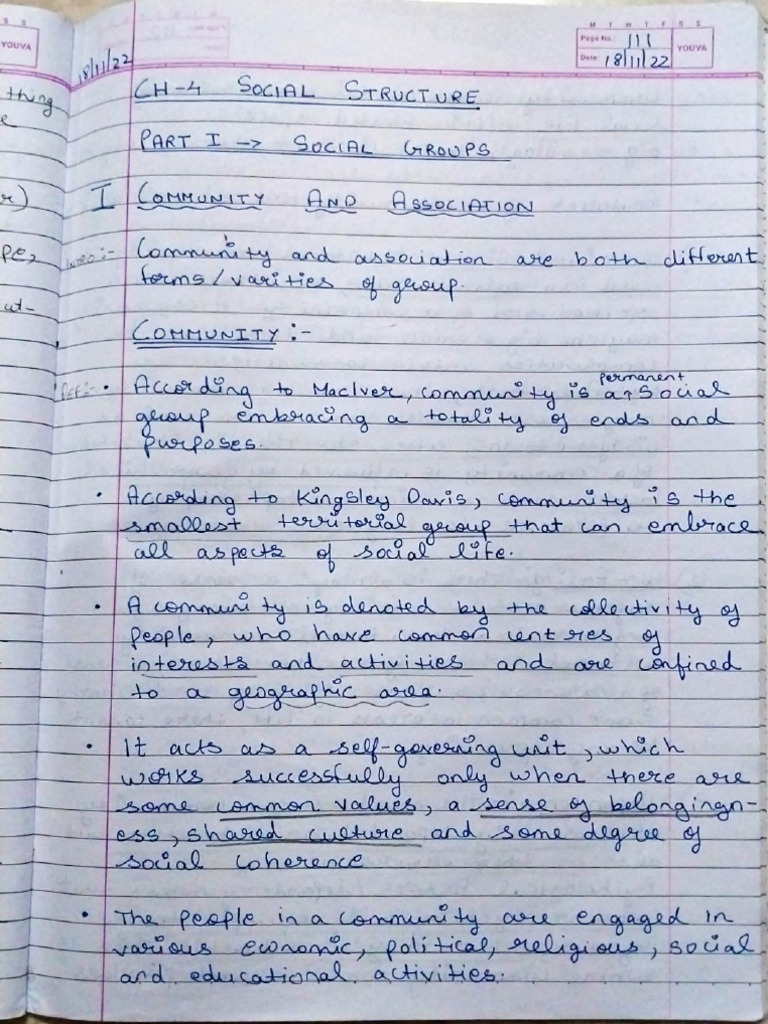 S S
YOUVA
thing
e
r)
pe,
ut-
M T W T F S S
Page No.: 111
Date: 18/11/22
YOUVA
18/11/22
CH-4 SOCIAL STRUCTURE
PART I -> SOCIAL GROUPS
I COMMUNITY AND ASSOCIATION
Intro:- Community and association are both different
forms/varities of group.
COMMUNITY :-
Def:- • According to MacIver, community is a permanent social
group embracing a totality of ends and
purposes.
• According to Kingsley Davis, community is the
smallest territorial group that can embrace
all aspects of social life.
• A community is denoted by the collectivity of
people, who have common centres of
interests and activities and are confined
to a geographic area.
• It acts as a self-governing unit, which
works successfully only when there are
some common values, a sense of belongingn-
ess, shared culture and some degree of
social coherence
• The people in a community are engaged in
various economic, political, religious, social
and educational activities.